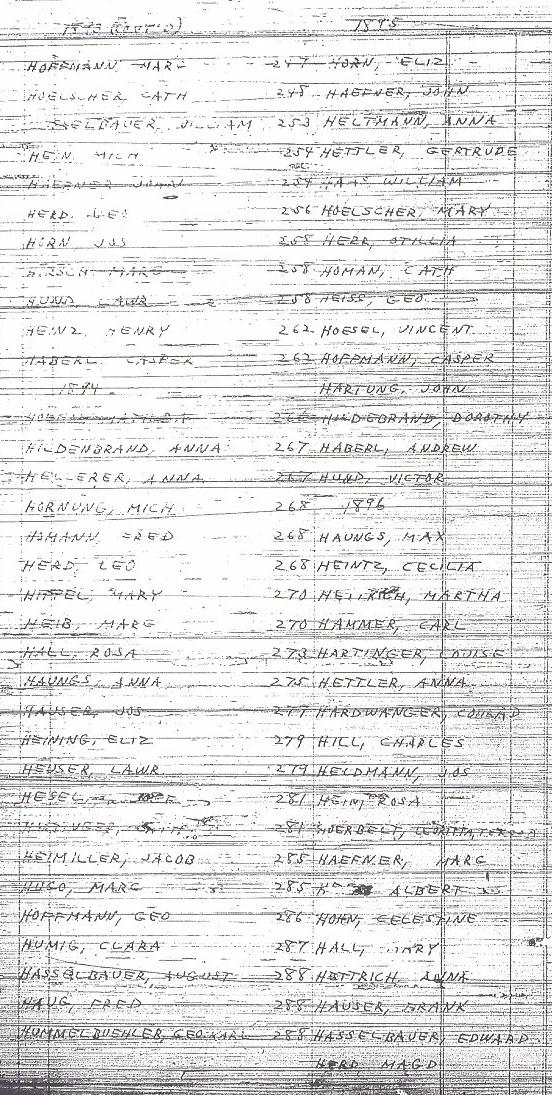 1895
HOFFMANN, MARG 247 HORN, ELIZ
HOELSCHER CATH 248 HAEFNER, JOHN
253 HELTMANN, ANNA
HEIN, MICH 254 HETTLER, GERTRUDE
HAEFNER JOHN 254 HAAS WILLIAM
HERD. LEO 256 HOELSCHER, MARY
HORN JOS 258 HERR, OTILLIA
HIRSCH MARG 258 HOMAN, CATH
HUND LAWR 258 HEISS, GEO
HEINZ HENRY 262 HOESEL, VINCENT
HABERL CASPER 262 HOFFMANN, CASPER
1894 HARTUNG, JOHN
HILDEBRAND, DOROTHY
HILDENBRAND, ANNA 267 HABERL, ANDREW
HELLERER, ANNA 267 HUND, VICTOR
HORNUNG, MICH 268 1896
HOMANN FRED 268 HAUNGS, MAX
HERD, LEO 268 HEINTZ, CECILIA
HIPPEL, MARY 270 MARTHA
HEIB, MARG 270 HAMMER, CARL
HALL, ROSA 273 HARTINGER, LOUISE
HAUNGS, ANNA 275 HETTLER, ANNA
HAUSER, JOS 277 HARDWANGER, CONRAD
HEINING, ELIZ 279 HILL, CHARLES
HEUSER, LAWR 279 HELDMANN, JOS
HESEL 281 HEIM, ROSA
281 HOERBELT,
HEIMILLER, JACOB 285 HAEFNER, MARG
HUGO, MARG 285 ALBERT
HOFFMANN, GEO 286 HOHN, CELESTINE
HUMIG, CLARA 287 HALL, MARY
HASSELBAUER, AUGUST 288 HETTRICH, ANNA
HAUG, FRED 288 HAUSER, FRANK
HUMMELBUEHLER, GEO. KARL 288 HASSELBAUER, EDWARD
HERD, MAGD